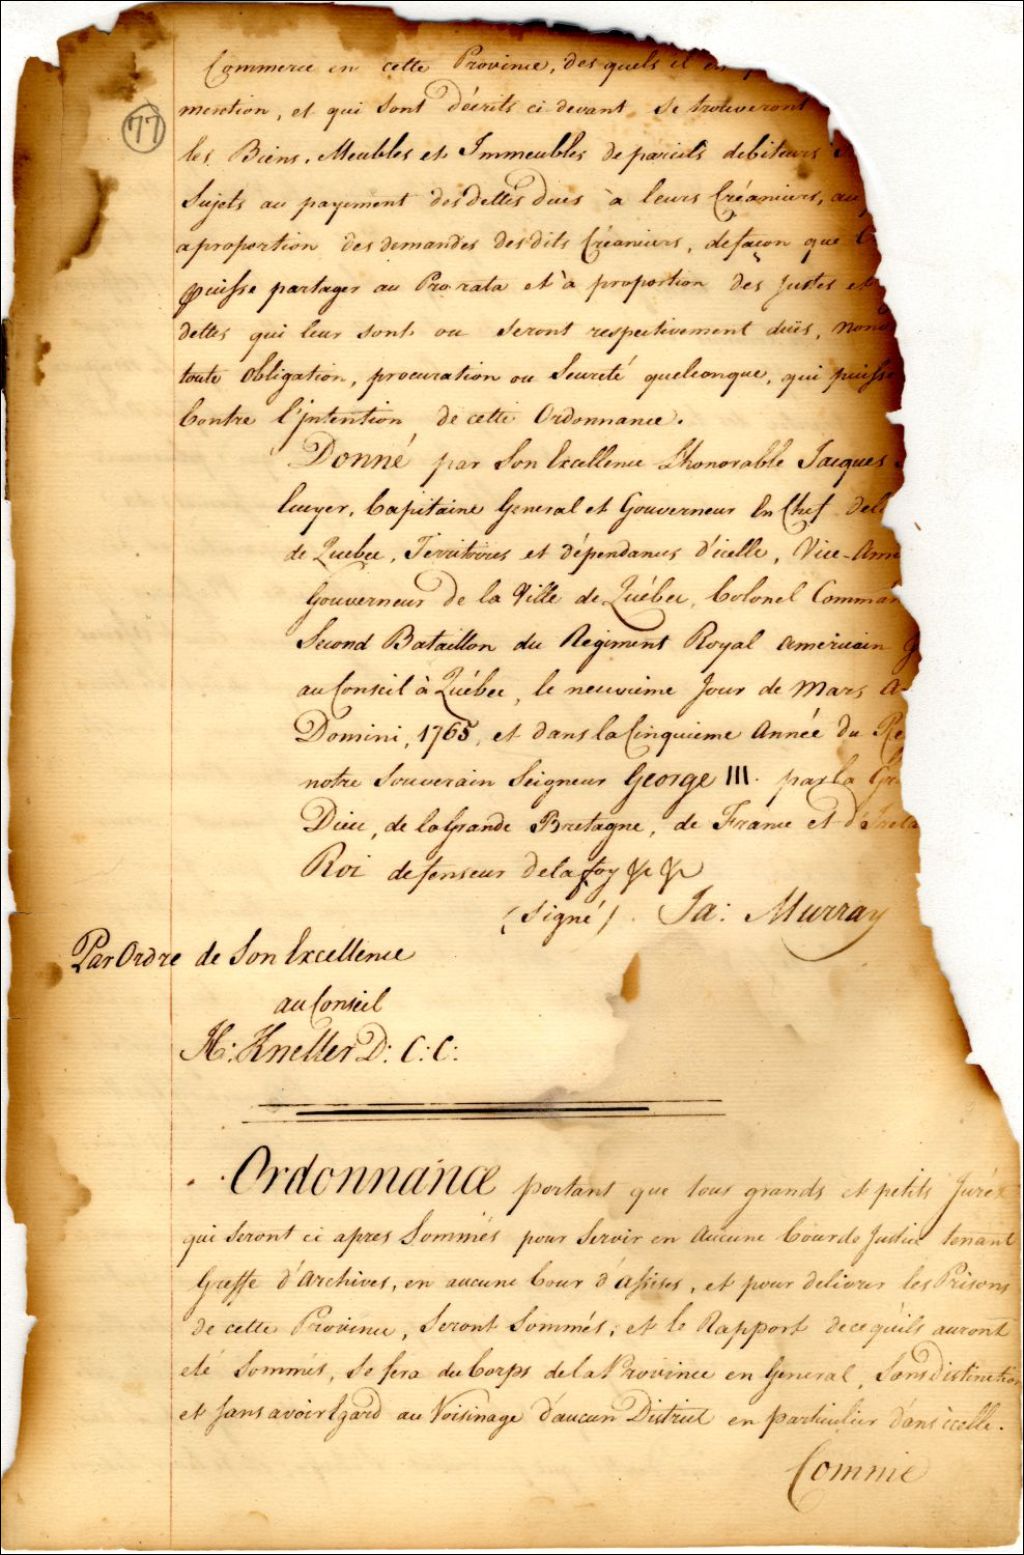 Commerce en cette Province, des quels il en
77
mention, et qui sont décrits ci devant se trouveront
les Biens, Meubles et Immeubles de pareils debiteurs
Sujets au payement des dettes dues à leurs Créanciers, au
a proportion des demandes des dits Créanciers, de façon que
puisse partager au Prorata et à proportion des Justes et
dettes qui leur sont ou seront respectivement dües, non
toute obligation, procuration ou Seureté quelconque, qui puisse
Contre l'intention de cette Ordonnance.
Donné par Son Excellence L'honorable Jacques
Ecuyer, Capitaine General et Gouverneur En Chef de
de Quebec, Territoires et dépendances d'icelle, Vice-Am
Gouverneur de la Ville de Québec, Colonel Comman
Second Bataillon du Régiment Royal Américain
au Conseil à Québec, le neuvième Jour de Mars A
Domini, 1765, et dans la Cinquieme Année du Re
notre Souverain Seigneur George III. par la Gr
Dieu, de la Grande Bretagne, de France et d'Irela
Roi defenseur de la foy &c &c
(Signé). Ja: Murray
Par Ordre de Son Excellence
au Conseil
H: Kneller D: C: C:
Ordonnance portant que tous grands et petits Jurés
qui seront ci apres Sommés pour Servir en Aucune Cour de Justice tenant
Greffe d'Archives, en aucune Cour d'Assises, et pour delivrer les Prisons
de cette Province, Seront Sommés, et le Rapport de ce qu'ils auront
été Sommés, Se fera du Corps de la Province en General, Sans distinction
et sans avoir Egard au Voisinage d'aucun District en particulier dans icelle.
Comme